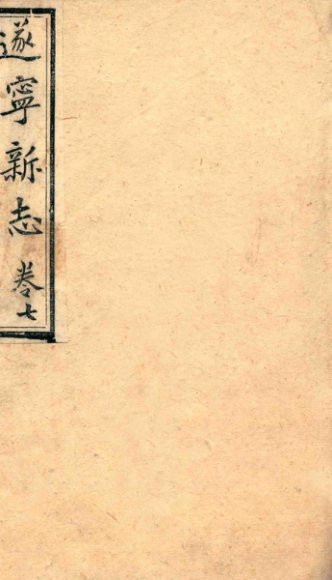 遂寧新志 卷七